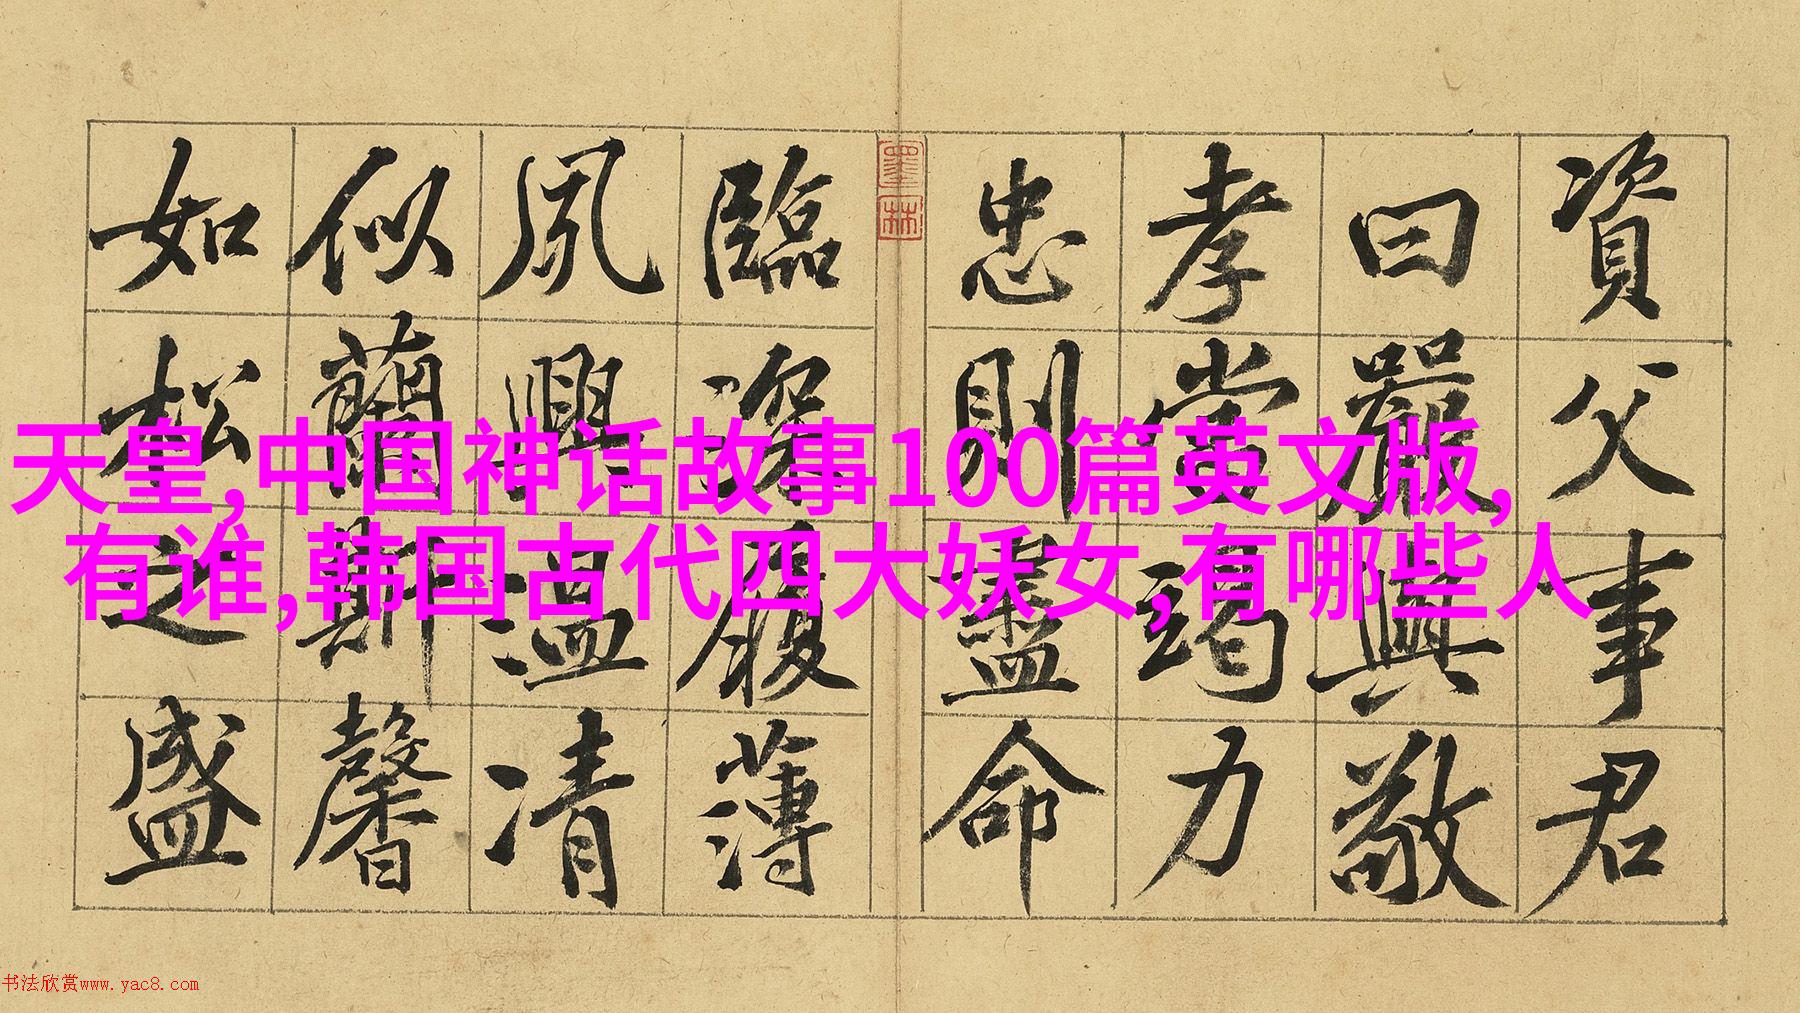 天皇,中国神话故事100篇英文版,
有谁,韩国古代四大妖女,有哪些人
資父事君
曰嚴與敬
孝當竭力
忠則盡命
墨林
臨深履薄
夙興溫凊
似蘭斯馨
如松之盛
书法欣赏www.yac8.com